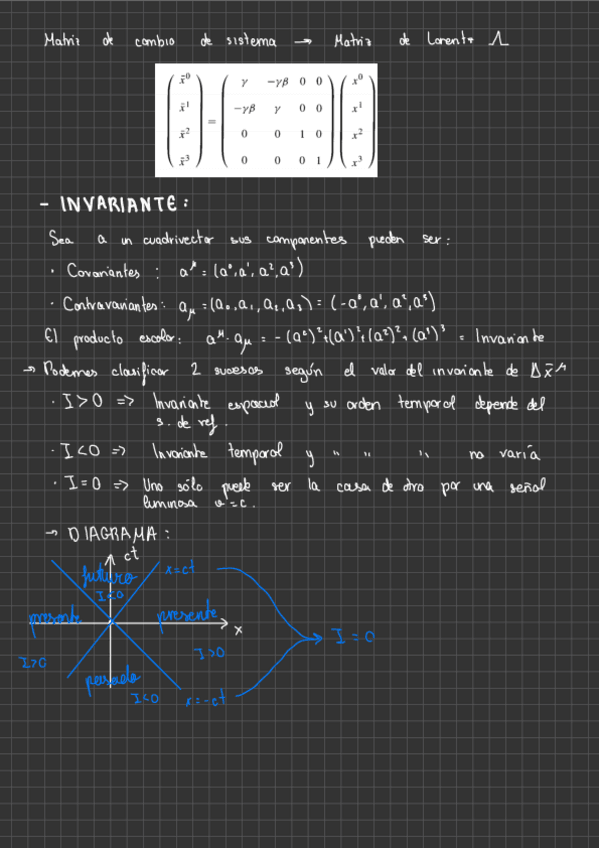 Matriz de cambio de sistema → Matriz de Lorentz Λ
( x̄⁰ ) = ( γ -γβ 0 0 ) ( x⁰ )
( x̄¹ ) ( -γβ γ 0 0 ) ( x¹ )
( x̄² ) ( 0 0 1 0 ) ( x² )
( x̄³ ) ( 0 0 0 1 ) ( x³ )
- INVARIANTE:
Sea a un cuadrivector sus componentes pueden ser:
· Covariantes : a^μ = (a⁰, a¹, a², a³)
· Contravariantes: a_μ = (a₀, a₁, a₂, a₃) = (-a⁰, a¹, a², a³)
El producto escalar: a^μ · a_μ = -(a⁰)² + (a¹)² + (a²)² + (a³)³ = Invariante
→ Podemos clasificar 2 sucesos según el valor del invariante de Δx̄^μ
· I > 0 => Invariante espacial y su orden temporal depende del
s. de ref.
· I < 0 => Invariante temporal y " " " no varía
· I = 0 => Uno sólo puede ser la causa de otro por una señal
luminosa v = c.
→ DIAGRAMA:
ct
futuro
x = ct
I < 0
presente
presente
x
I = 0
I > 0
I > 0
pasado
I < 0
x = -ct